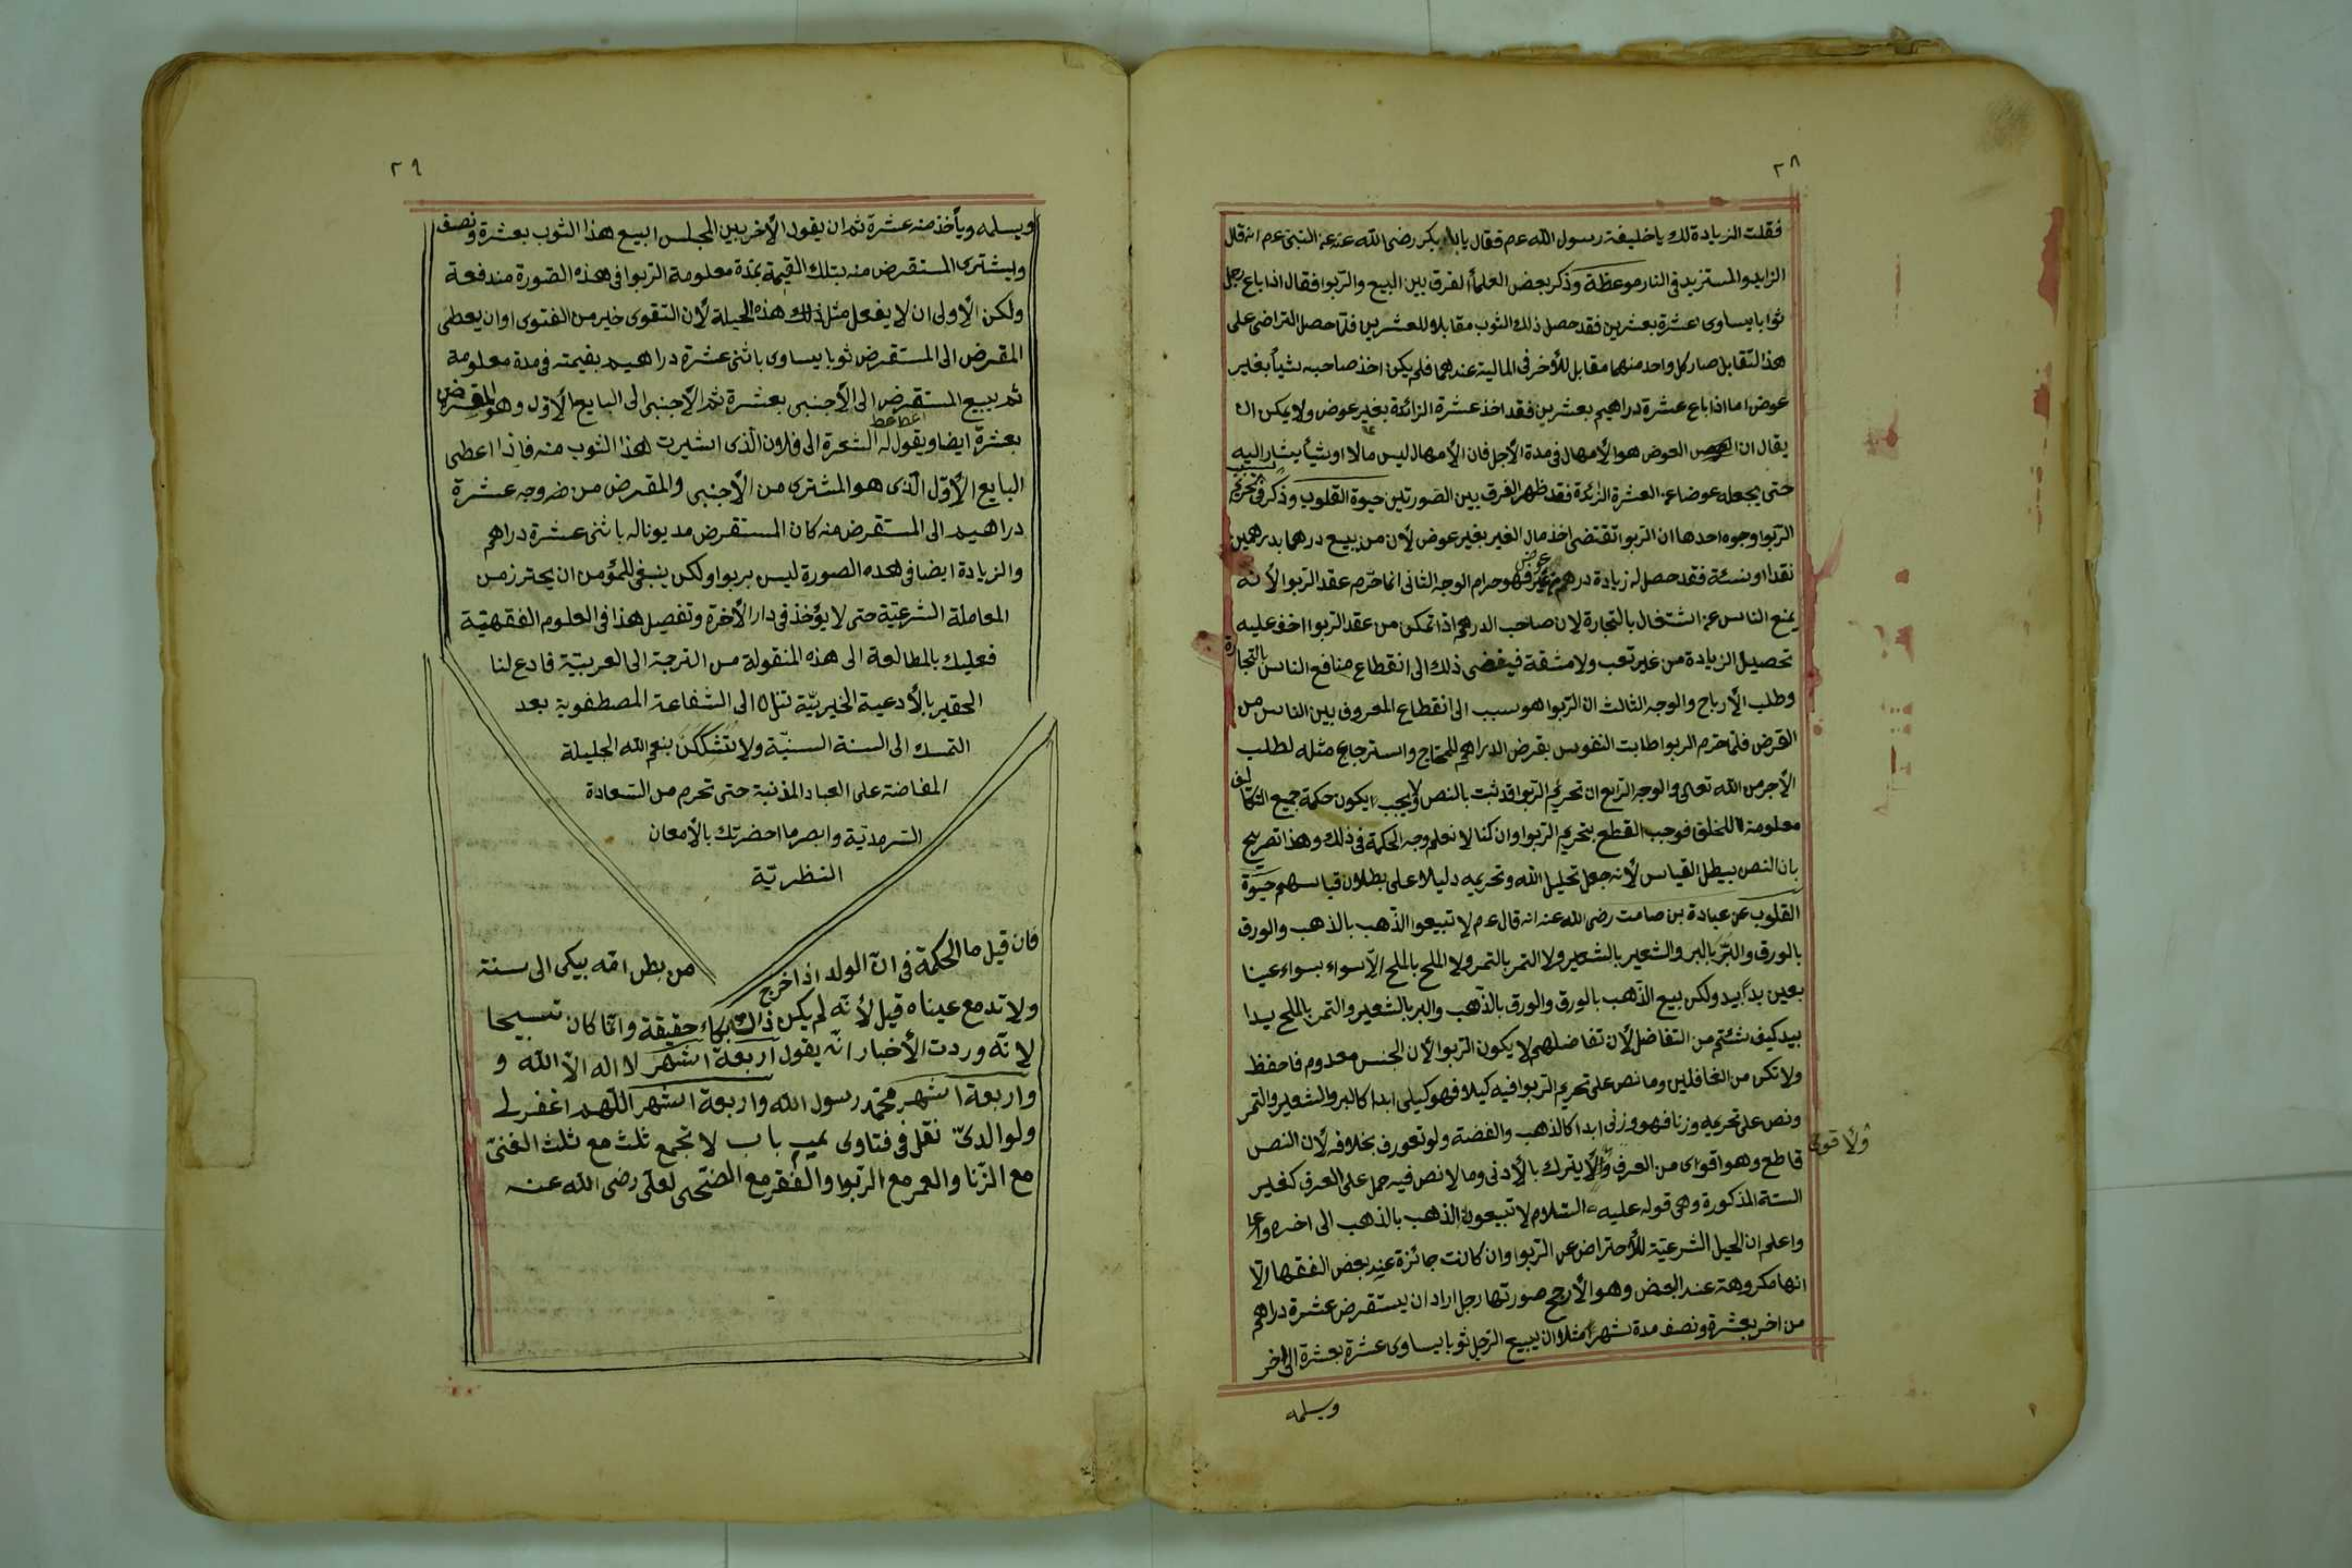 ٢٨
فقلت الزيادة لك يا خليفة رسول الله عم فقال يا بكر رضى الله عنه عن النبى عم انه قال
الزايد والمستزيد فى النار موعظة وذكر بعض العلماء الفرق بين البيع والربوا فقال اذا باع رجل
ثوابا يساوى عشرة بعشرين فقد حصل ذلك الثوب مقابلا للعشرين فلما حصل التراضى على
هذا التقابل صار كل واحد منهما مقابل للأخر فى المالية عندهما فلم يكن اخذ صاحبه شيأ بغير
عوض اما اذا باع عشرة دراهيم بعشرين فقد اخذ عشرة الزائدة بغير عوض ولا يمكن ان
يقال ان العوض هو الأمهال فى مدة الأجل فان الأمهال ليس مالا او شيأ يشار اليه
حتى يجعله عوضا عن العشرة الزائدة فقد ظهر الفرق بين الصورتين حيوة القلوب وذكر فى سبب تحريم
الربوا وجوه احدها ان الربوا تقتضى اخذ مال الغير بغير عوض لأن من يبيع درهما بدرهمين
نقدا او نسئة فقد حصل له زيادة درهم من غير عوض فهو حرام الوجه الثانى انما حرم عقد الربوا لأنه
يمنع الناس عن اشتغال بالتجارة لان صاحب الدرهم اذا تمكن من عقد الربوا اخف عليه
تحصيل الزيادة من غير تعب ولا مشقة فيفضى ذلك الى انقطاع منافع الناس بالتجارة
وطلب الأرباح والوجه الثالث ان الربوا هو سبب الى انقطاع المعروف بين الناس من
القرض فلما حرم الربوا طابت النفوس بقرض الدراهم للمحتاج واسترجاع مثله لطلب
الأجر من الله تعالى والوجه الرابع ان تحريم الربوا قد ثبت بالنص ولا يجب ان يكون حكمة جميع التكاليف
معلومة للخلق فوجب القطع بتحريم الربوا وان كنا لا نعلم وجه الحكمة فى ذلك وهذا تصريح
بان النص يبطل القياس لأنه جعل تحليل الله وتحريمه دليلا على بطلان قياسهم حيوة
القلوب عن عبادة بن صامت رضى الله عنه انه قال عم لا تبيعوا الذهب بالذهب والورق
بالورق والبر بالبر والشعير بالشعير ولا التمر بالتمر ولا الملح بالملح الا سواء بسواء عينا
بعين يدا بيد ولكن بيع الذهب بالورق والورق بالذهب والبر بالشعير والتمر بالملح يدا
بيد كيف شئتم من التفاضل لأن تفاضلهم لا يكون الربوا لأن الجنس معدوم فاحفظ
ولا تكن من الغافلين وما نص على تحريم الربوا فيه كيلا فهو كيلى ابدا كالبر والشعير والتمر
ونص على تحريمه وزنا فهو وزنى ابدا كالذهب والفضة ولو تعورف بخلافه لأن النص
قاطع وهو اقوى من العرف والأقوى لا يترك بالأدنى وما لا نص فيه حمل على العرف كغير
الستة المذكورة وهى قوله عليه السلام لا تبيعون الذهب بالذهب الى اخره
واعلم ان الحيل الشرعية للأحتراض عن الربوا وان كانت جائزة عند بعض الفقهاء الا
انها مكروهة عند البعض وهو الأرجح صورتها رجل اراد ان يستقرض عشرة دراهم
من اخر بعشرة ونصف مدة شهر مثلا ان يبيع الرجل ثوبا يساوى عشرة بعشرة الى اخر
ويسلمه
٢٩
ويسلمه ويأخذ منه عشرة ثم ان يقول الأخر بين المجلس ابيع هذا الثوب بعشرة ونصف
ويشترى المستقرض منه بتلك القيمة بمدة معلومة الربوا فى هذه الصورة مندفعة
ولكن الأولى ان لا يفعل مثل هذه الحيلة لأن التقوى خير من الفتوى او ان يعطى
المقرض الى المستقرض ثوبا يساوى باثنى عشرة دراهيم بقيمته فى مدة معلومة
ثم يبيع المستقرض الى الأجنبى بعشرة ثم الأجنبى الى البايع الأول وهو المقرض
بعشرة ايضا ويقول له اعط العشرة الى فلان الذى اشيرت هذا الثوب منه فاذا اعطى
البايع الأول الذى هو المشترى من الأجنبى والمقرض من ضروجه عشرة
دراهيم الى المستقرض منه كان المستقرض مديونا له باثنى عشرة دراهم
والزيادة ايضا فى هذه الصورة ليس بربوا ولكن ينبغى للمؤمن ان يحترز من
المعاملة الشرعية حتى لا يؤخذ فى دار الأخرة وتفصيل هذا فى العلوم الفقهية
فعليك بالمطالعة الى هذه المنقولة من الترجمة الى العربية فادع لنا
الحقير بالأدعية الخيرية تنل الى الشفاعة المصطفوية بعد
التمسك الى السنة السنية ولا تتشككن بنعم الله الجليلة
المفاضة على العباد المذنبة حتى تحرم من السعادة
السرمدية وابصر ما احضرتك بالأمعان
النظرية
فان قيل ما الحكمة فى ان الولد اذا خرج من بطن امه يبكى الى سنة
ولا تدمع عيناه قيل لأنه لم يكن ذلك بكاء حقيقة وانما كان تسبيحا
لانه وردت الأخبار انه يقول اربعة اشهر لا اله الا الله و
واربعة اشهر محمد رسول الله واربعة اشهر اللهم اغفر لى
ولوالدى نقل فى فتاوى باب لا تجمع ثلث مع ثلث الغنى
مع الزنا والعمر مع الربوا والفقر مع الضحى لعلى رضى الله عنه